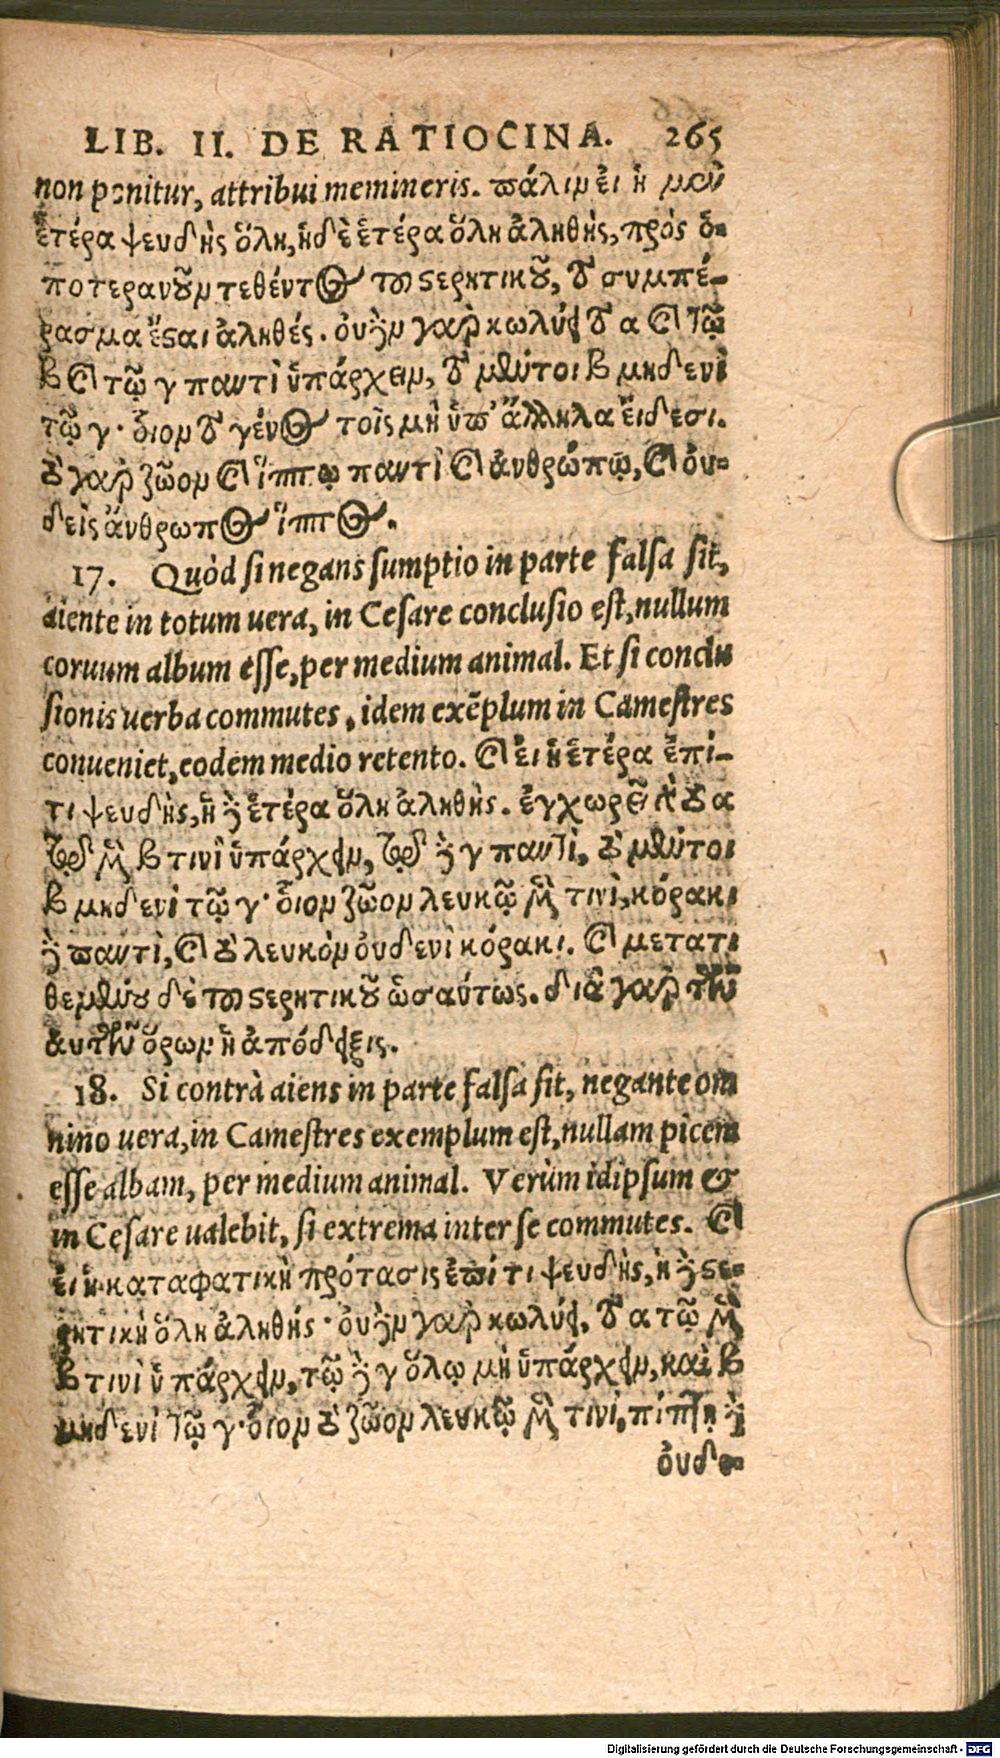 LIB. II. DE RATIOCINA. 265
non ponitur, attribui memineris. πάλιν εἰ ἡ μὲν
ἑτέρα ψευδὴς ὅλη, ἡ δὲ ἑτέρα ὅλη ἀληθὴς, πρὸς ὁ-
ποτερανοῦν τεθέντος τοῦ στερητικοῦ, τὸ συμπέ-
ρασμα ἔσται ἀληθές. οὐδὲν γὰρ κωλύει τὸ α καὶ τῷ
β καὶ τῷ γ παντὶ ὑπάρχειν, τὸ μέντοι β μηδενὶ
τῷ γ· οἷον τὸ γένος τοῖς μὴ ὑπ' ἄλληλα εἴδεσι.
τὸ γὰρ ζῶον καὶ ἵππῳ παντὶ καὶ ἀνθρώπῳ, καὶ οὐ-
δεὶς ἄνθρωπος ἵππος.
17. Quòd si negans sumptio in parte falsa sit,
aiente in totum uera, in Cesare conclusio est, nullum
coruum album esse, per medium animal. Et si conclu
sionis uerba commutes, idem exēplum in Camestres
conueniet, eodem medio retento. καὶ εἰ ἡ ἑτέρα ἐπί-
τι ψευδὴς, ἡ δὲ ἑτέρα ὅλη ἀληθής. ἐγχωρεῖ γὰρ τὸ α
τῷ μὲν β τινὶ ὑπάρχειν, τῷ δὲ γ παντὶ, τὸ μέντοι
β μηδενὶ τῷ γ· οἷον ζῶον λευκῷ μὲν τινὶ, κόρακι
δὲ παντὶ, καὶ τὸ λευκὸν οὐδενὶ κόρακι. καὶ μετατι
θεμένου δὲ τοῦ στερητικοῦ ὡσαύτως. διὰ γὰρ τῶν
αὐτῶν ὅρων ἡ ἀπόδειξις.
18. Si contrà aiens in parte falsa sit, negante om
nino uera, in Camestres exemplum est, nullam picem
esse albam, per medium animal. Verùm idipsum &
in Cesare ualebit, si extrema inter se commutes. καὶ
εἰ ἡ καταφατικὴ πρότασις ἐπί τι ψευδὴς, ἡ δὲ στε-
ρητικὴ ὅλη ἀληθής· οὐδὲν γὰρ κωλύει, τὸ α τῷ μὲν
β τινὶ ὑπάρχειν, τῷ δὲ γ ὅλῳ μὴ ὑπάρχειν, καὶ β
μηδενὶ τῷ γ· οἷον τὸ ζῶον λευκῷ μὲν τινὶ, πίττῃ δὲ
οὐδε-
Digitalisierung gefördert durch die Deutsche Forschungsgemeinschaft - DFG